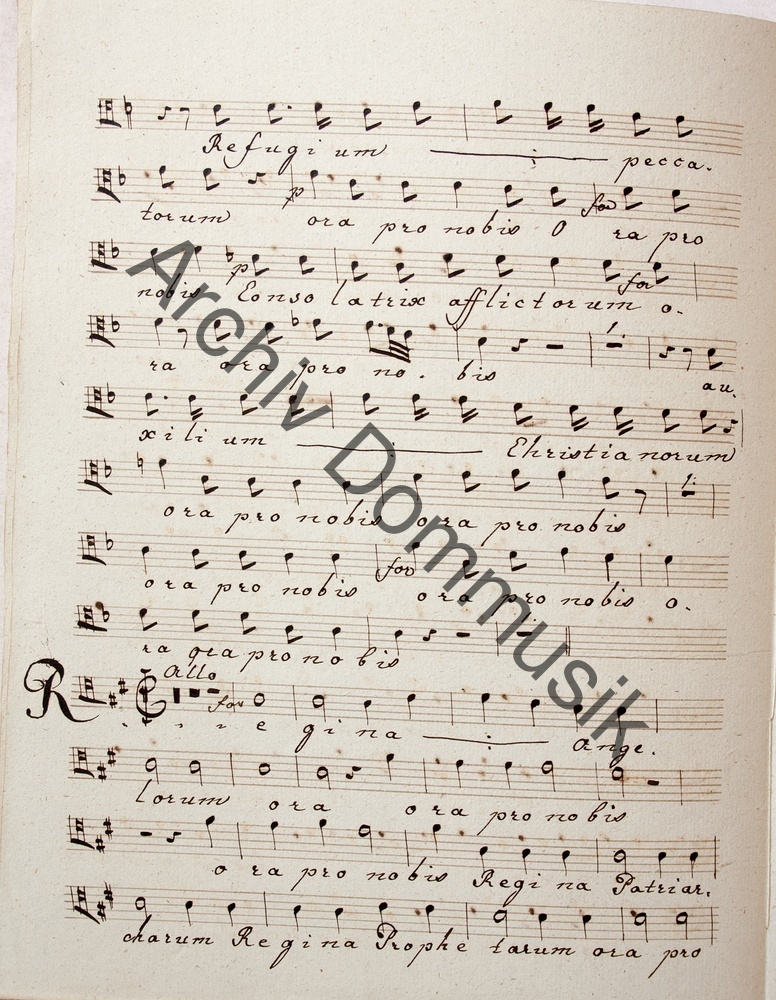 Refugi um pecca.
torum p ora pro nobis O for ra pro
nobis p Conso latrix afflictorum for o.
ra ora pro no. bis au.
xili um Christia norum
ora pro nobis ora pro nobis
ora pro nobis for ora pro nobis o.
ra ora pro no bis
Allo
R for e gina Ange.
lorum ora ora pro nobis
ora pro nobis Regi na Patriar.
charum Regina Prophe tarum ora pro
Archiv Dommusik